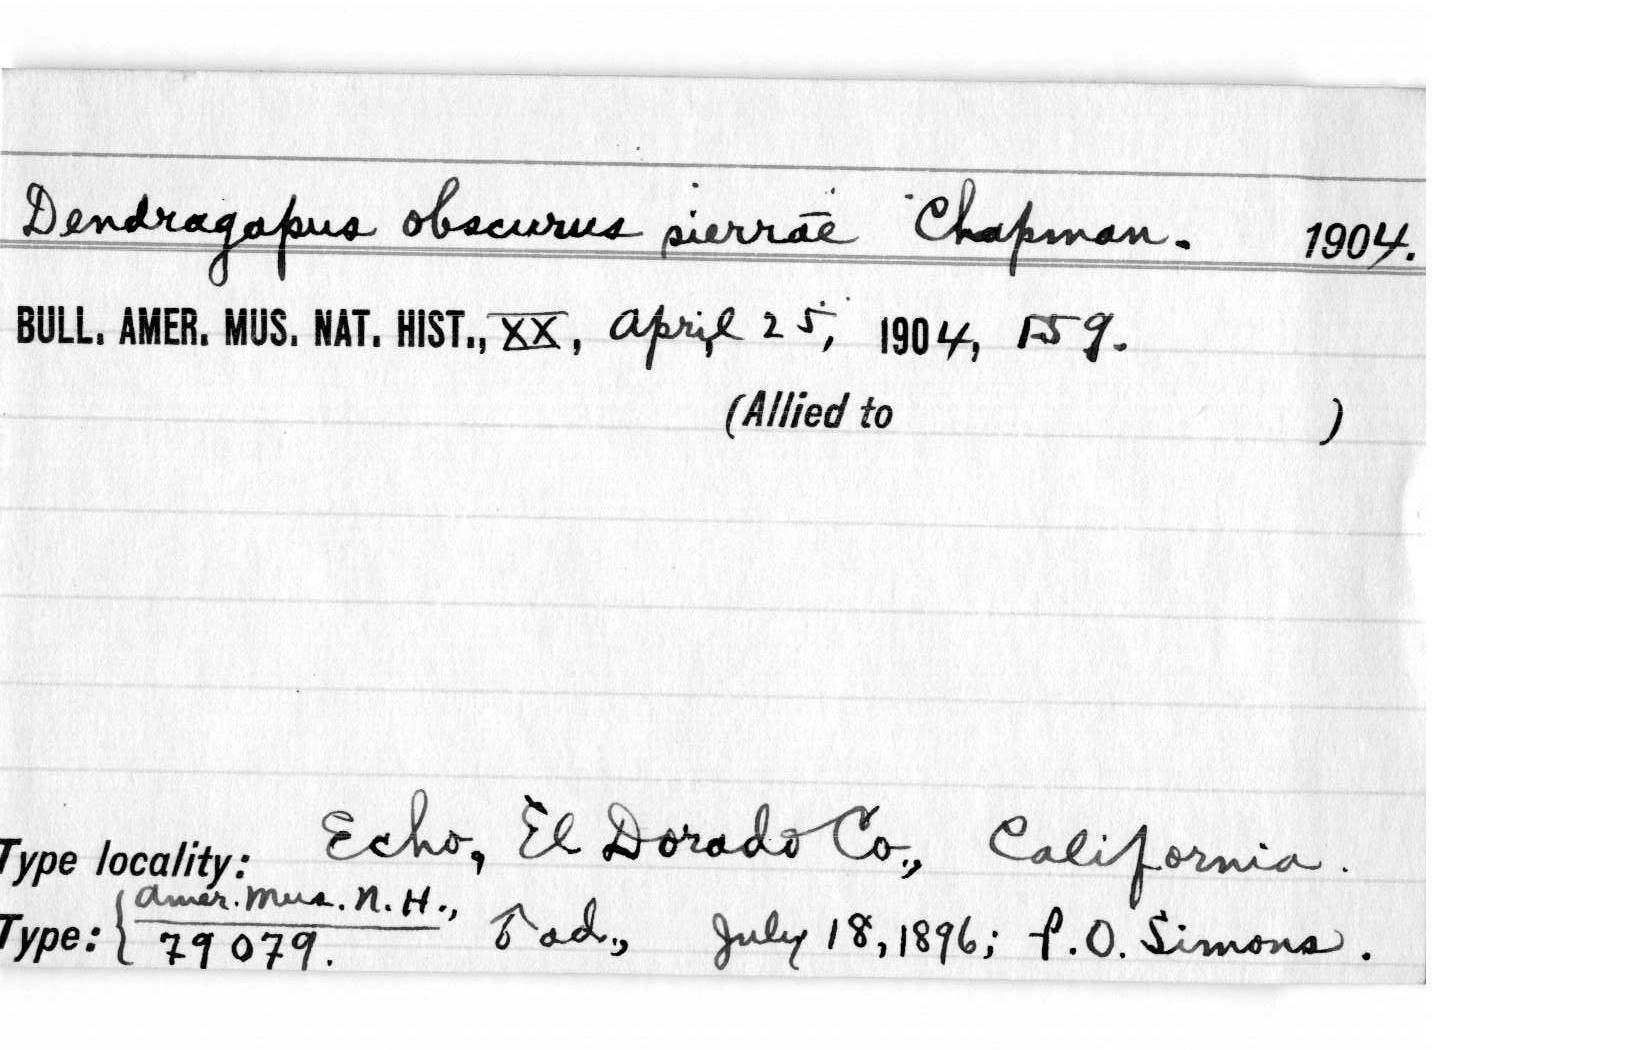 Dendragapus obscurus sierrae Chapman. 1904.
BULL. AMER. MUS. NAT. HIST., XX, April 25, 1904, 159.
(Allied to )
Type locality: Echo, El Dorado Co., California.
Type: { Amer. Mus. N. H.,
79079. ad., July 18, 1896; P. O. Simons.